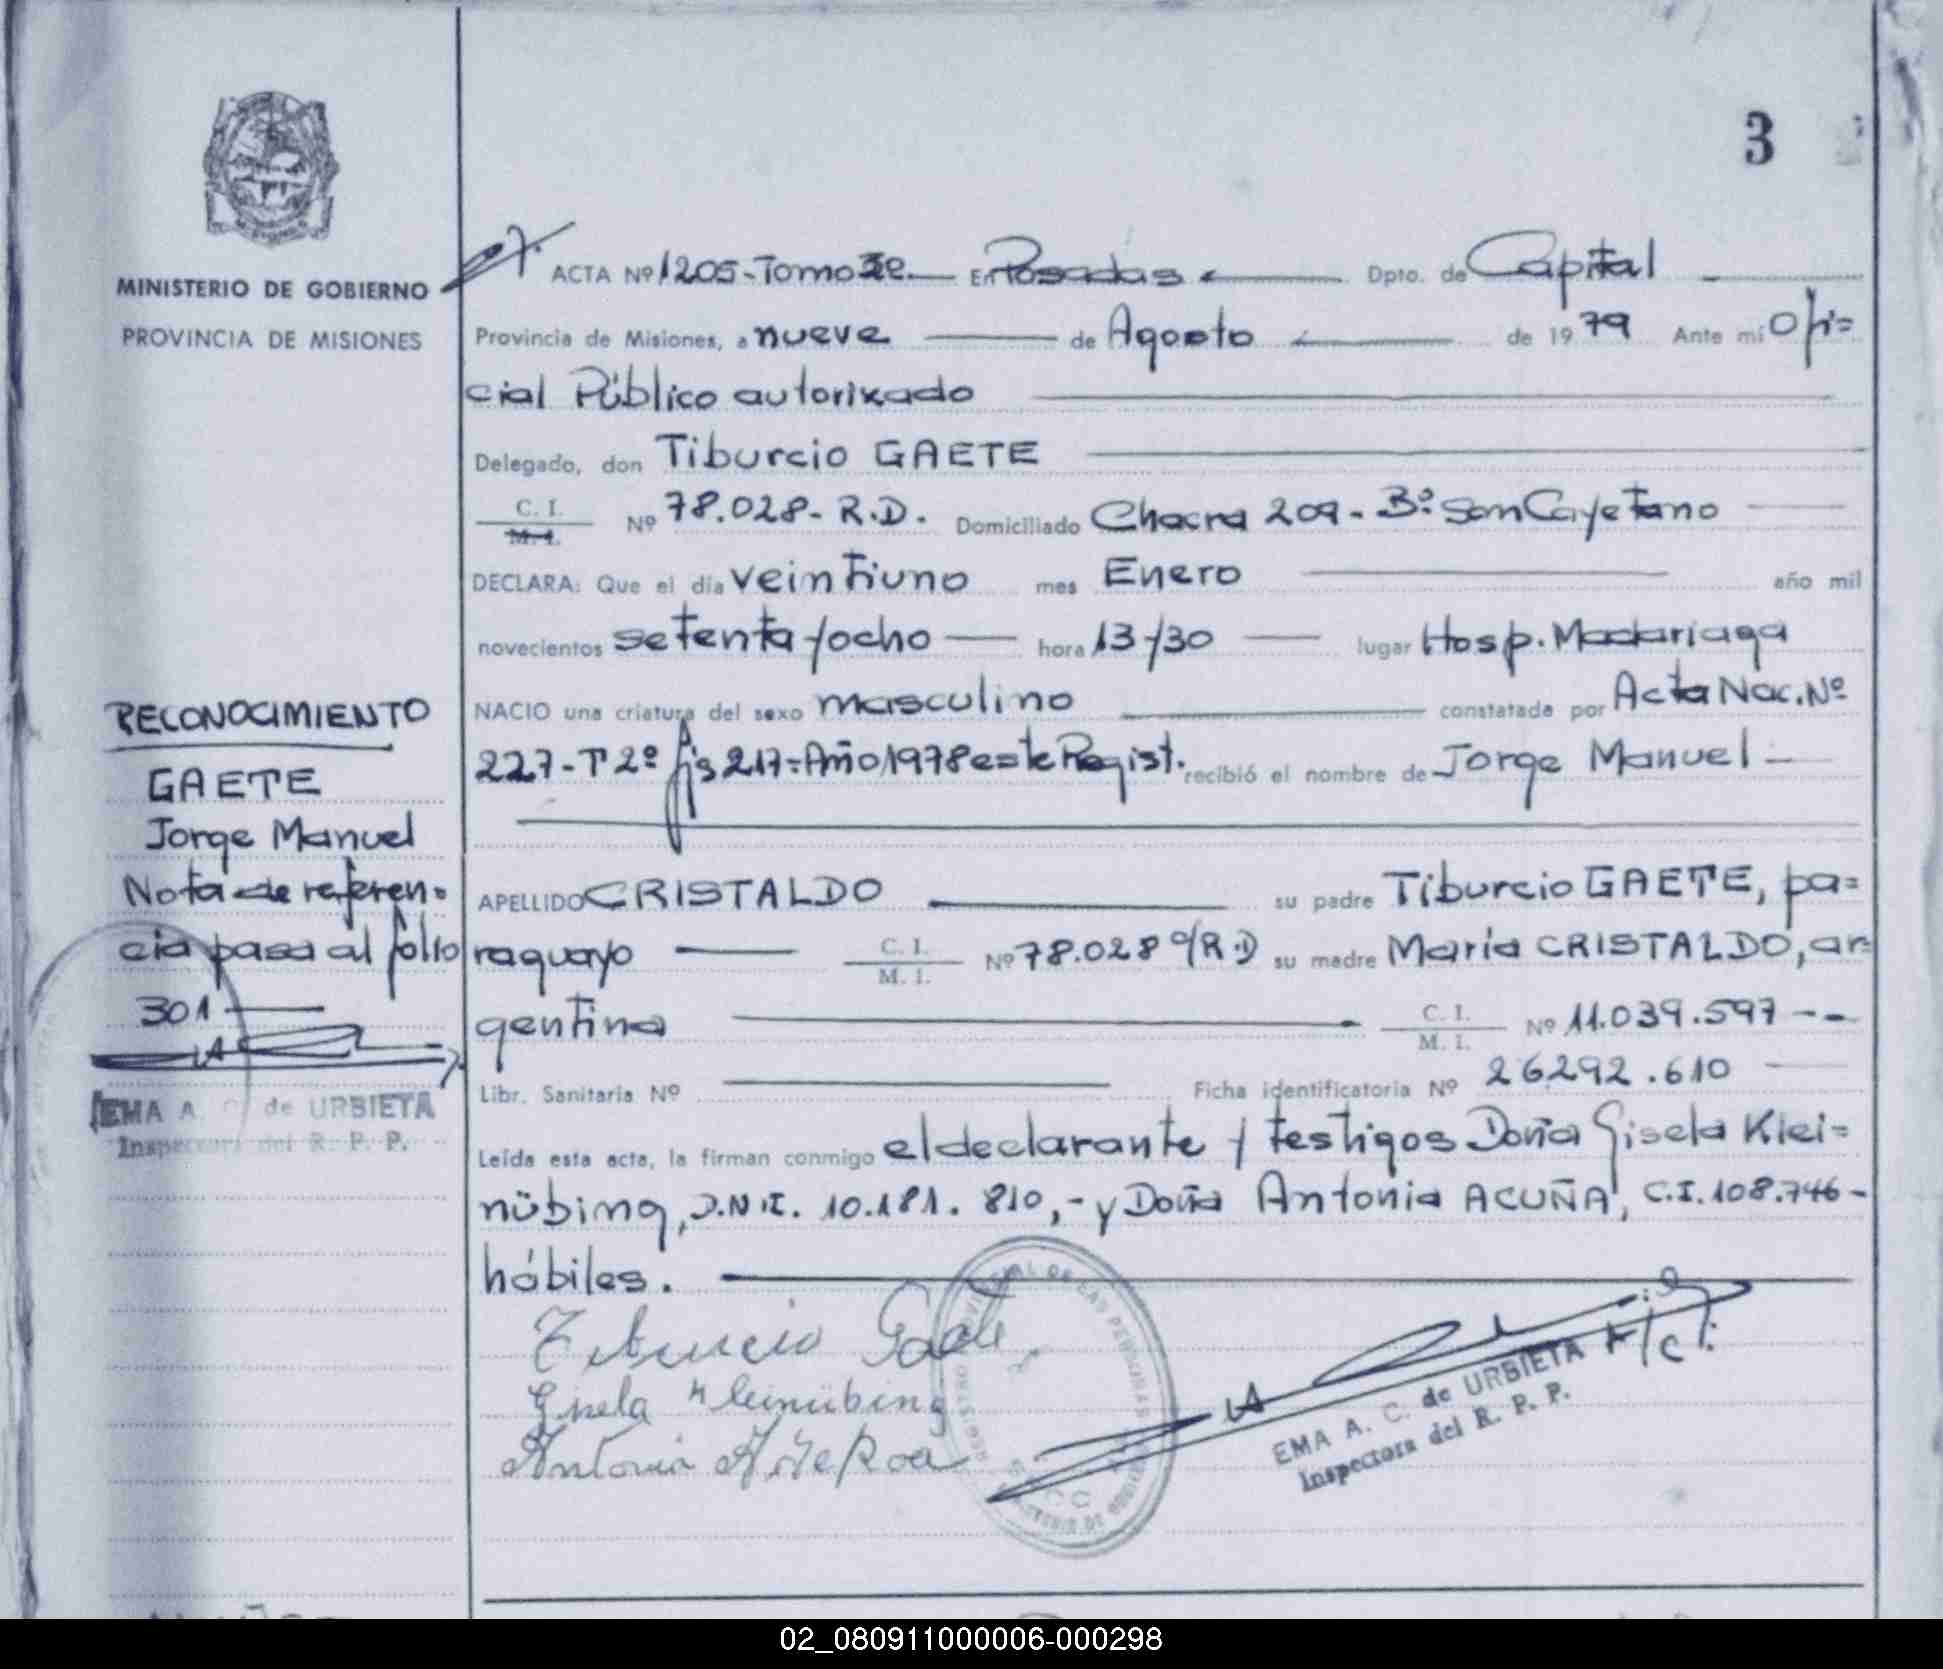 3
MINISTERIO DE GOBIERNO
PROVINCIA DE MISIONES
RECONOCIMIENTO
GAETE
Jorge Manuel
Nota de referen-
cia pasa al folio
301
EMA A. C. de URBIETA
Inspectora del R. P. P.
ACTA Nº 1205-Tomo En Posadas Dpto. de Capital
Provincia de Misiones, a nueve de Agosto de 1979 Ante mi Ofi=
cial Público autorizado
Delegado, don Tiburcio GAETE
C. I.
M. I.
Nº 78.028- R.D. Domiciliado Chacra 209- Bº San Cayetano
DECLARA: Que el día veintiuno mes Enero año mil
novecientos setenta y ocho hora 13 y 30 lugar Hosp. Madariaga
NACIO una criatura del sexo masculino constatada por Acta Nac. Nº
227-Tº 2º fjs 217=Año 1978 este Regist. recibió el nombre de Jorge Manuel
APELLIDO CRISTALDO su padre Tiburcio GAETE, pa=
raguayo C. I. M. I. Nº 78.028 R.D su madre María CRISTALDO, ar=
gentina C. I. M. I. Nº 11.039.597
Libr. Sanitaria Nº Ficha identificatoria Nº 26292.610
Leída esta acta, la firman conmigo el declarante y testigos Doña Gisela Klei=
nübing, D.N.I. 10.181.810,- y Doña Antonia ACUÑA, C.I. 108.746-
hábiles.
Tiburcio Gaete
Gisela Kleinübing
Antonia A. de Roa
EMA A. C. de URBIETA
Inspectora del R. P. P.
02_080911000006-000298